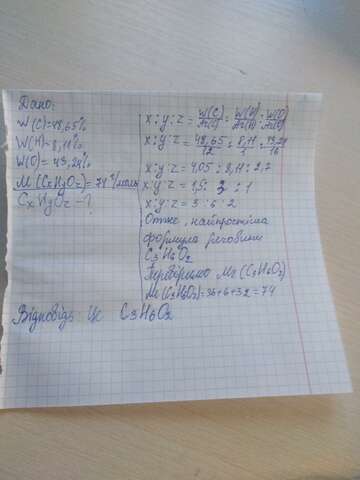 Дано:
W(C)=48,65%
W(H)=8,11%
W(O)=43,24%
M(CxHyOz)=74 г/моль
CxHyOz-?
x:y:z = W(C)/Ar(C) : W(H)/Ar(H) : W(O)/Ar(O)
x:y:z = 48,65/12 : 8,11/1 : 43,24/16
x:y:z = 4,05 : 8,11 : 2,7
x:y:z = 1,5 : 3 : 1
x:y:z = 3 : 6 : 2
Отже, найпростіша
формула речовини
C3H6O2
Перевіримо Mr(C3H6O2)
Mr(C3H6O2)=36+6+32=74
Відповідь це C3H6O2